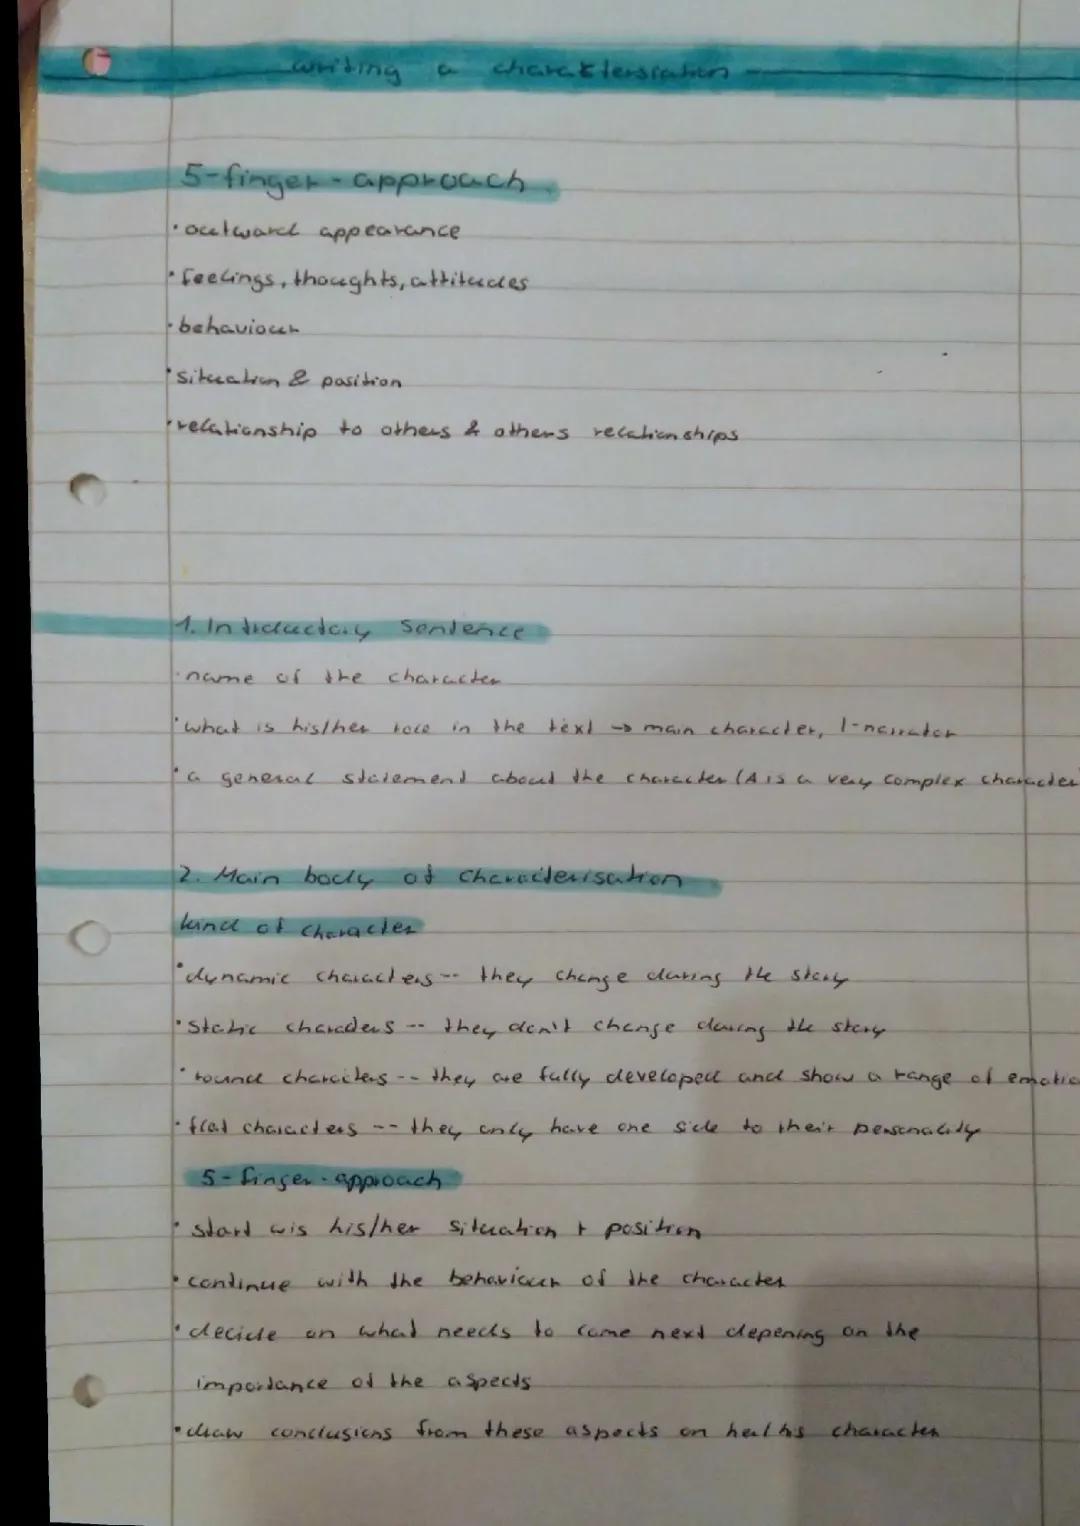 writing a charakterisation
5-finger-approach
· outward appearance
· feelings, thoughts, attitudes
· behaviour
· situation & position
· relationship to others & others relationships
1. Introductory Sentence
· name of the character
· what is his/her role in the text → main character, I-narrator
· a general statement about the character (A is a very complex character
2. Main body of characterisation
kind of character
· dynamic characters -- they change during the story
· static characters -- they don't change during the story
· round characters -- they are fully developed and show a range of emotio
· flat characters -- they only have one side to their personality
5-finger-approach
· start wis his/her situation + position
· continue with the behaviour of the character
· decide on what needs to come next depening on the
importance of the aspects
· draw conclusions from these aspects on character